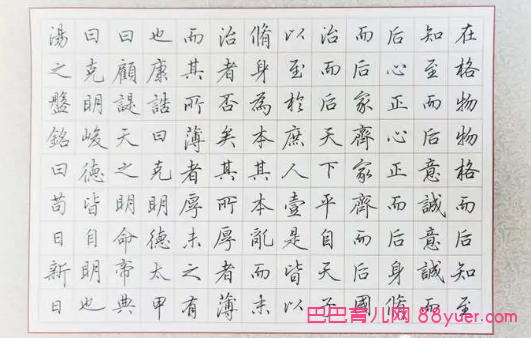 在格物物格而后知至
知至而后意誠意誠而
后心正心正而后身脩
而后家齊家齊而后國
治而后天下平自天子
以至於庶人壹是皆以
脩身為本其本亂而末
治者否矣其所厚者薄
而其所薄者厚未之有
也康誥曰克明德太甲
曰顧諟天之明命帝典
曰克明峻德皆自明也
湯之盤銘曰苟日新日
巴巴育儿网 88yuer.com